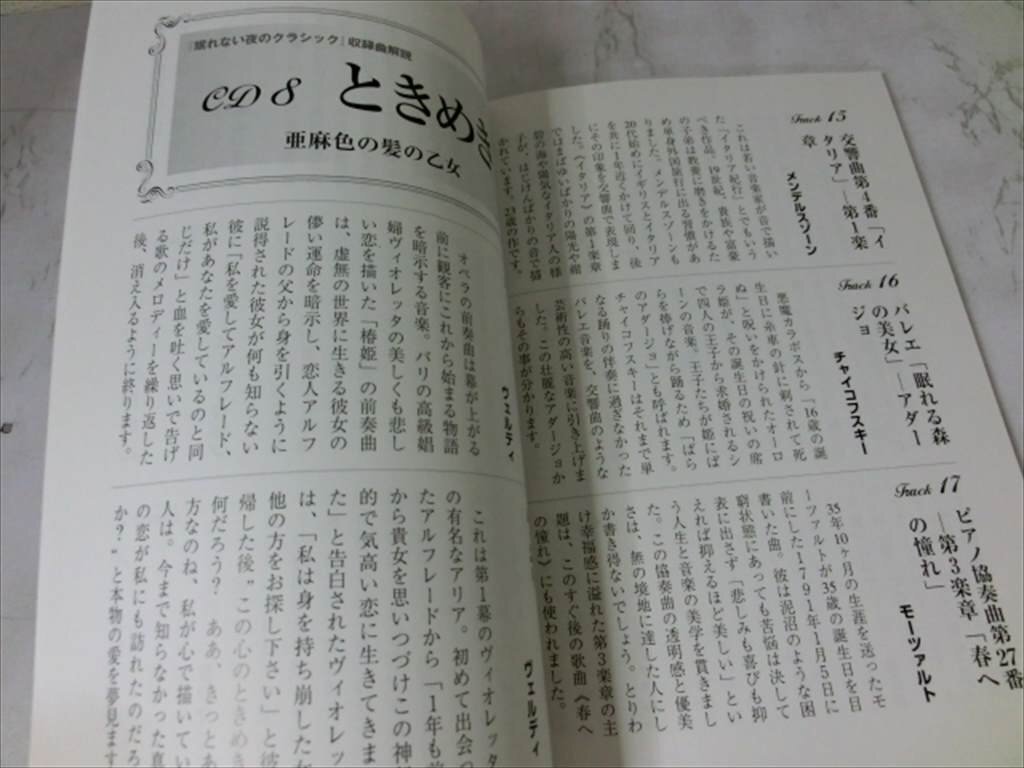 Track 15
交響曲第4番「イ
タリア」―第1楽
章
メンデルスゾーン
これは若い音楽家が音で描い
た「イタリア紀行」とでもいう
べき作品。19世紀、貴族や富豪
の子弟は教養に磨きをかけるた
め単身外国旅行に出る習慣があ
りました。メンデルスゾーンも
20代始めにイギリスとイタリア
を共に1年近くかけて回り、後
にその印象を交響曲で表現しま
した。〈イタリア〉の第1楽章
ではまばゆいばかりの陽光や紺
碧の海や陽気なイタリア人の様
子が、はじけんばかりの音で描
かれています。23歳の作です。
Track 16
バレエ「眠れる森
の美女」―アダー
ジョ
チャイコフスキー
悪魔カラボスから「16歳の誕
生日に糸車の針に刺されて死
ぬ」と呪いをかけられたオーロ
ラ姫が、その誕生日の祝いの席
で四人の王子から求婚されるシ
ーンの音楽。王子たちが姫にば
らを捧げながら踊るため「ばら
のアダージョ」とも呼ばれます。
チャイコフスキーはそれまで単
なる踊りの伴奏に過ぎなかった
バレエ音楽を、交響曲のような
芸術性の高い音楽に引き上げま
した。この壮麗なアダージョか
らもその事が分かります。
Track 17
ピアノ協奏曲第27番
―第3楽章「春へ
の憧れ」
モーツァルト
35年10ヶ月の生涯を送ったモ
ーツァルトが35歳の誕生日を目
前にした1791年1月5日に
書いた曲。彼は泥沼のような困
窮状態にあっても苦悩は決して
表に出さず「悲しみも喜びも抑
えれば抑えるほど美しい」とい
う人生と音楽の美学を貫きまし
た。この協奏曲の透明感と優美
さは、無の境地に達した人にし
か書き得ないでしょう。とりわ
け幸福感に溢れた第3楽章の主
題は、このすぐ後の歌曲〈春へ
の憧れ〉にも使われました。
『眠れない夜のクラシック』収録曲解説
CD 8
ときめき
亜麻色の髪の乙女
ヴェルディ
オペラの前奏曲は幕が上がる
前に観客にこれから始まる物語
を暗示する音楽。パリの高級娼
婦ヴィオレッタの美しくも悲し
い恋を描いた「椿姫」の前奏曲
は、虚無の世界に生きる彼女の
儚い運命を暗示し、恋人アルフ
レードの父から身を引くように
説得された彼女が何も知らない
彼に「私を愛してアルフレード、
私があなたを愛しているのと同
じだけ」と血を吐く思いで告げ
る歌のメロディーを繰り返した
後、消え入るように終ります。
ヴェルディ
これは第1幕のヴィオレッタ
の有名なアリア。初めて出会っ
たアルフレードから「1年も前
から貴女を思いつづけこの神
的で気高い恋に生きてきま
た」と告白されたヴィオレッ
は、「私は身を持ち崩した女
他の方をお探し下さい」と彼
帰した後〝この心のときめき
何だろう? ああ、きっとあ
方なのね、私が心で描いてい
人は。今まで知らなかった真
の恋が私にも訪れたのだろ
か?〟と本物の愛を夢見ます